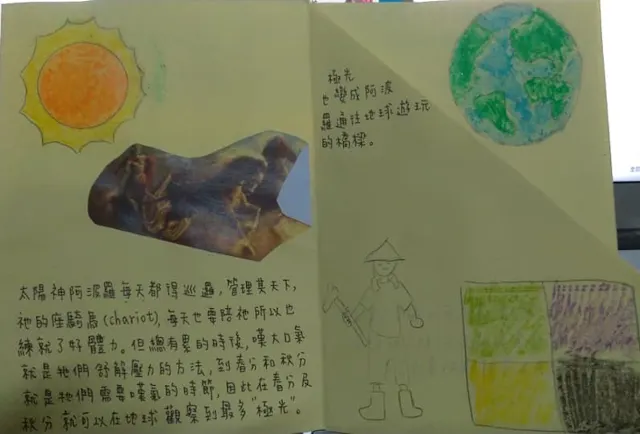 太陽神阿波羅每天都得巡邏,管理其天下,
祂的座騎為(chariot),每天也要陪祂所以也
練就了好體力。但總有累的時候,嘆大口氣
就是牠們舒解壓力的方法,到春分和秋分
就是牠們需要嘆氣的時節,因此在春分及
秋分就可以在地球觀察到最多"極光"。
極光
也變成阿波
羅通往地球遊玩
的橋樑。